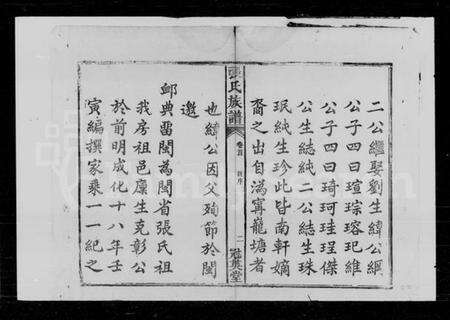 二公繼娶劉生緯公綱
公子四曰瑄琮瑢玘維
公子四曰琦珂珪珵傑
公生綕純二公綕生珠
珉純生珍此皆南軒嫡
裔之出自溈寧龍塘者
張氏族譜 卷首 二 冠英堂
也緯公因父殉節於閩
邀
卹典留閩為閩省張氏祖
我房祖邑廩生克彰公
於前明成化十八年壬
寅編撰家乘一一紀之